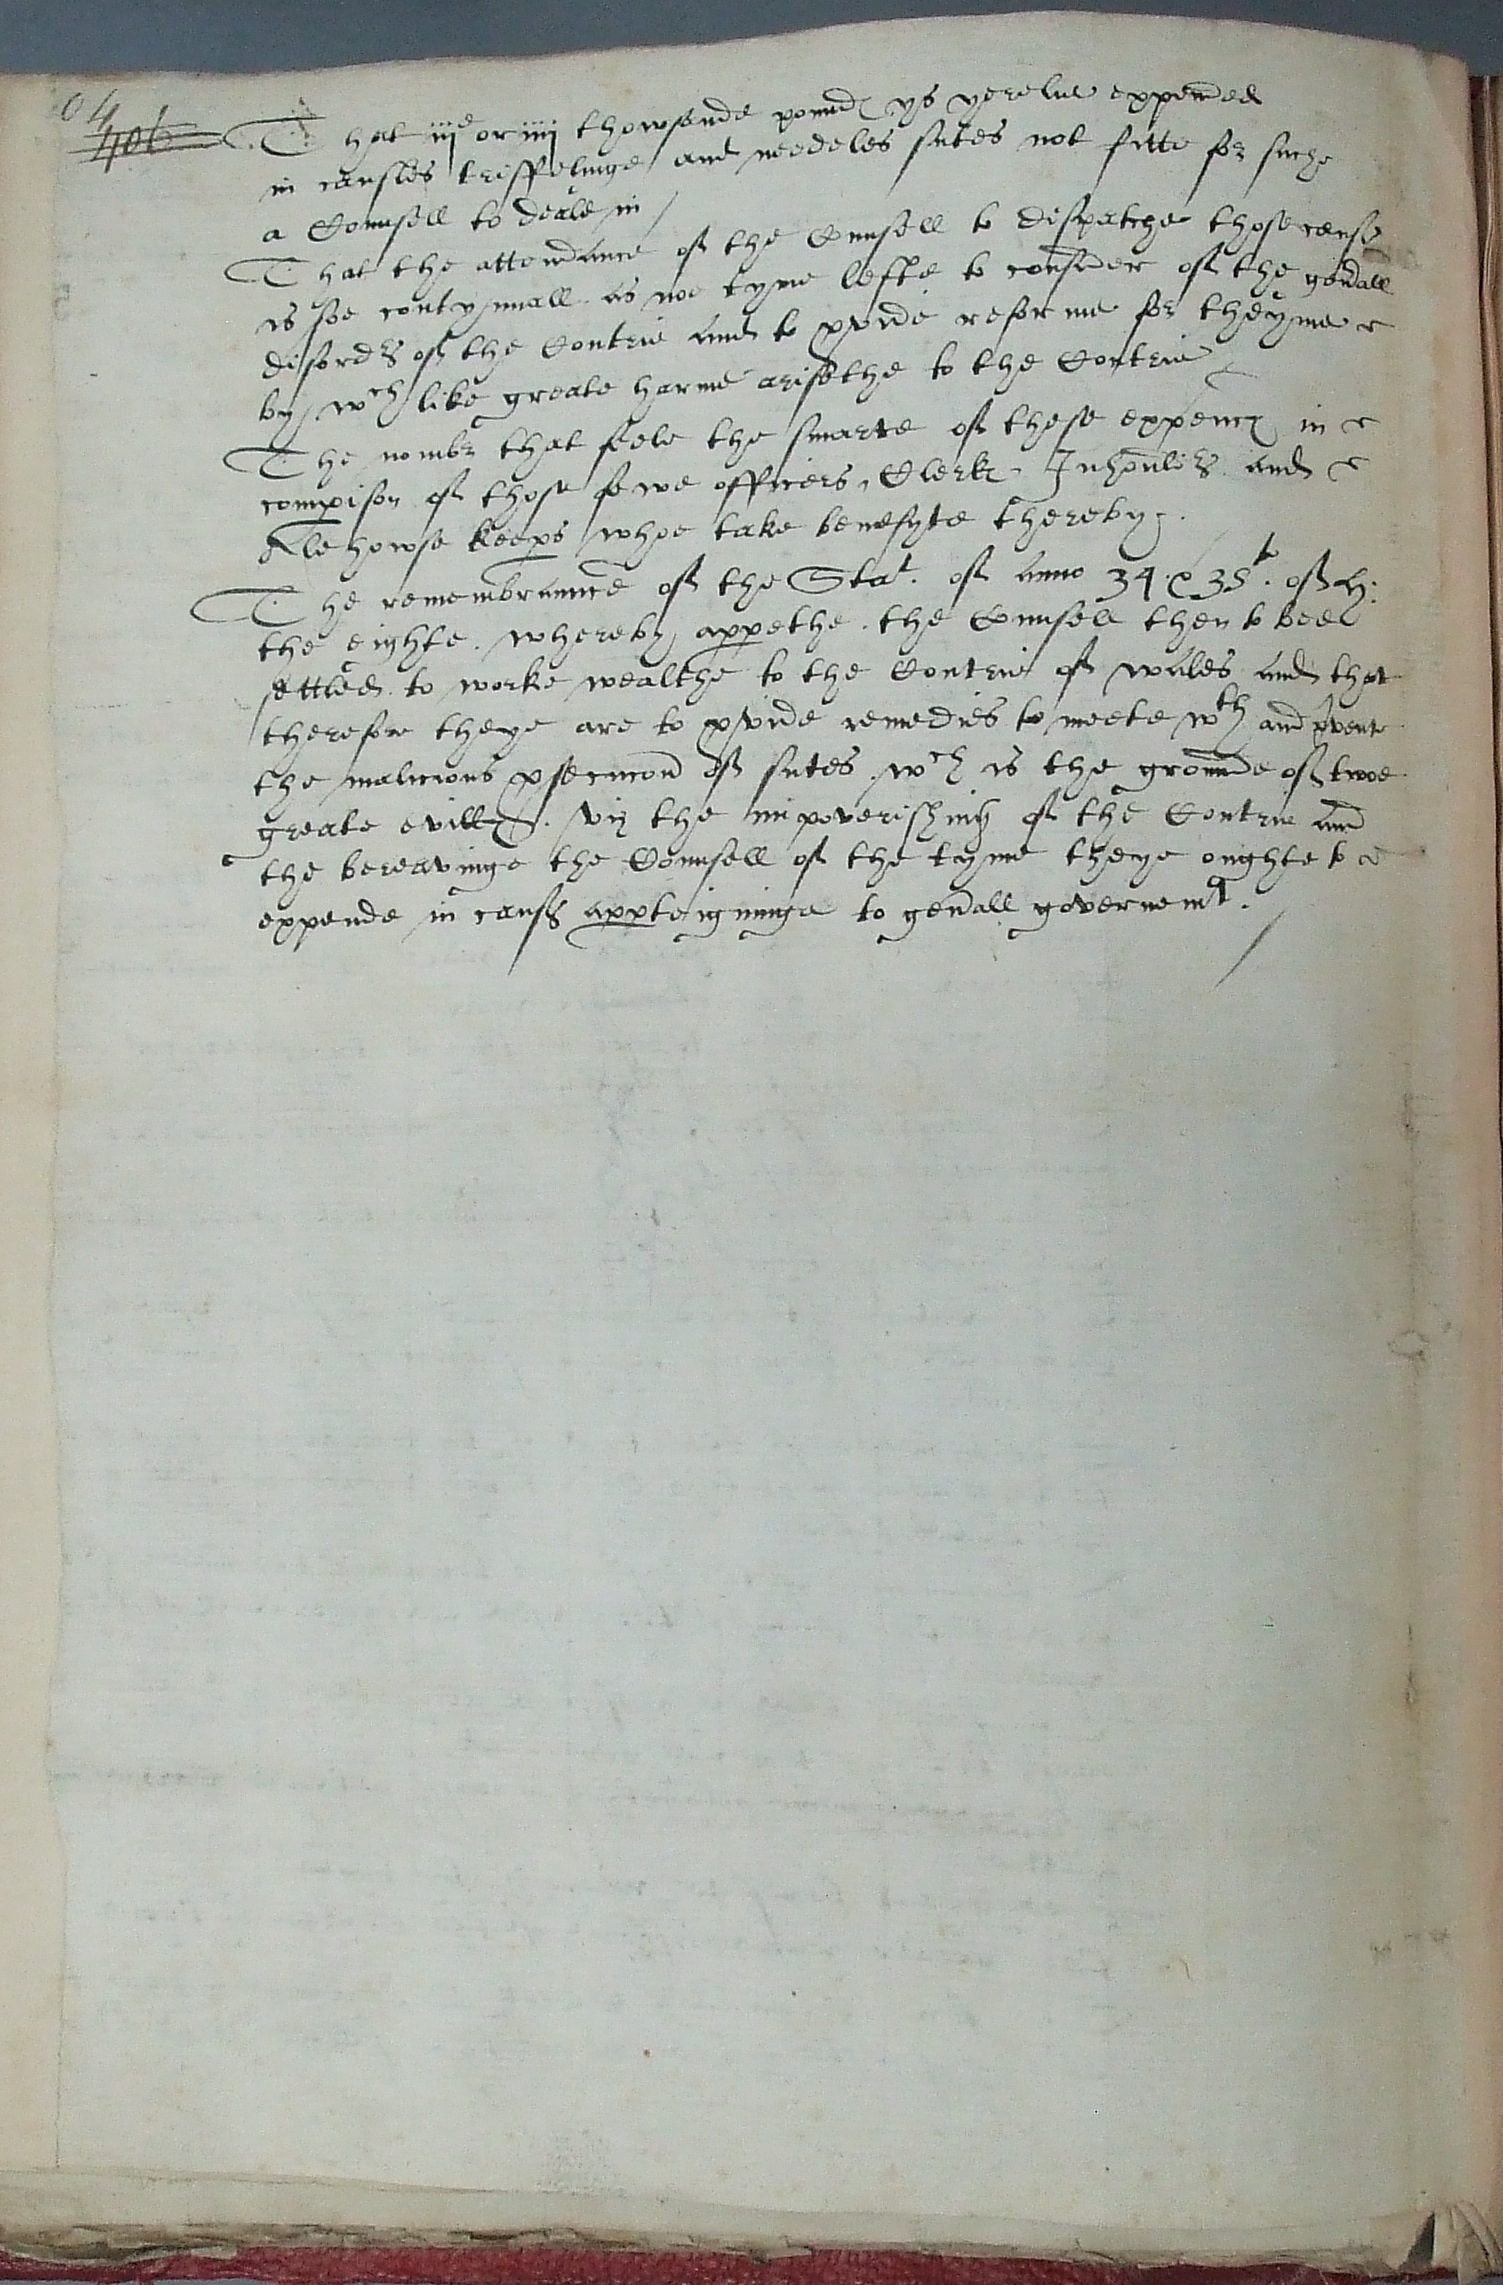 04
406
That iij or iiij thowsande pound ys yerelie expended
in causses triffelinge and needeles sutes not fitte for suche
a Counsell to deale in /
That the attendance of the Counsell to dispatche those causs
is soe contynuall as noe tyme lefte to consider of the genall
disords of the Contrie and to pvide reforme for theyme
by wch like greate harme arisethe to the Contrie
The nombr that fele the smarte of these expenc in
compison of those fewe officers, Clerk Inhoulds and
Alehowse keeps whoe take benefyte thereby.
The remembrannce of the Stat. of Anno 34. & 35to. of H:
the eighte. whereby appethe. the Counsell then to bee
settled to worke wealthe to the Contrie of wales and that
therefore theye are to pvide remedies to meete wth and pvente
the malicious psecucon of sutes. wch is the grounde of twoe
greate evills. viz the impoverishing of the Contrie and
the bereavinge the Counsell of the tyme theye oughte to
expende in causs appteigninge to genall governemt.